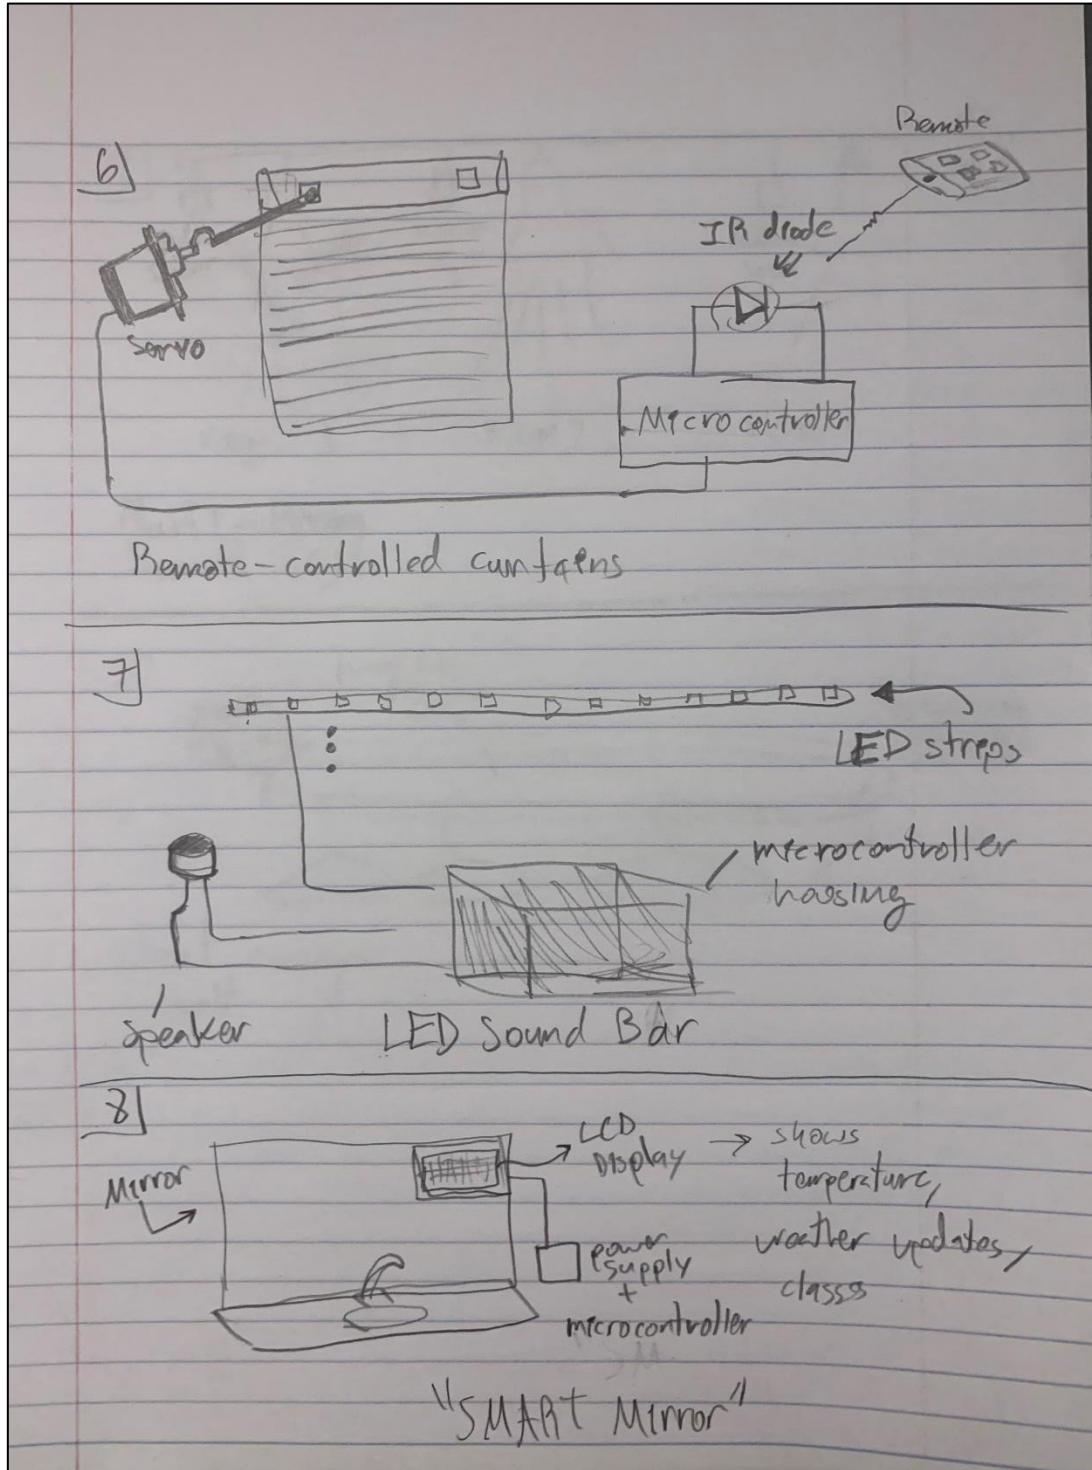 6
Remote
IR diode
Servo
Microcontroller
Remote-controlled curtains
7
LED strips
microcontroller
hossing
speaker
LED Sound Bar
8
Mirror
LCD
Display → shows
temperature,
weather updates,
classs
power
supply
+
microcontroller
"SMART Mirror"